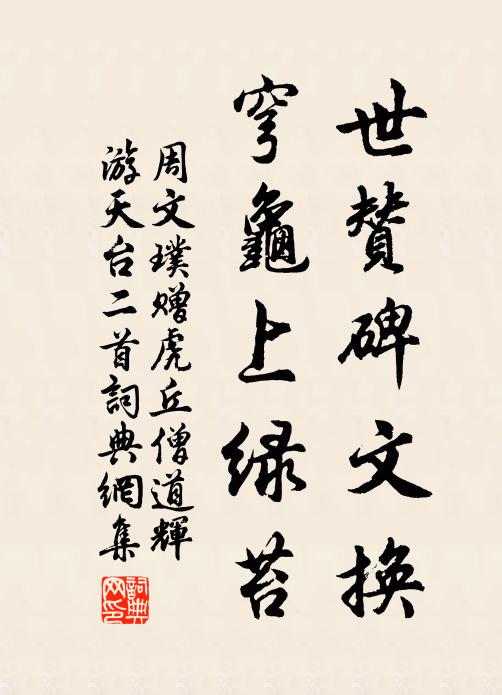 世贊碑文換
穹龜上绿苔
周文璞赠虎丘僧道輝
游天台二首詞典網集
詞典網印